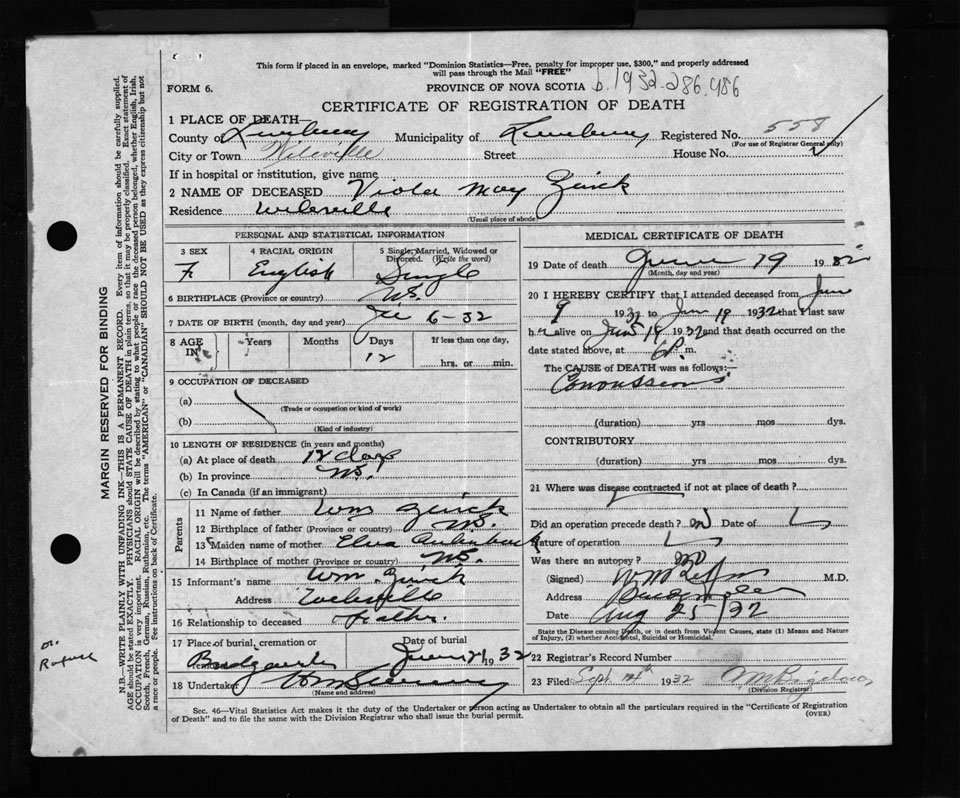 This form if placed in an envelope, marked "Dominion Statistics—Free, penalty for improper use, $300," and properly addressed
will pass through the Mail "FREE"
FORM 6.
PROVINCE OF NOVA SCOTIA b.1932-286,486
CERTIFICATE OF REGISTRATION OF DEATH
1 PLACE OF DEATH—
County of Lunenburg Municipality of Lunenburg Registered No. 558
(For use of Registrar General only)
City or Town Wileville Street House No.
If in hospital or institution, give name
2 NAME OF DECEASED Viola May Zwick
Residence Wileville
(Usual place of abode)
PERSONAL AND STATISTICAL INFORMATION
3 SEX 4 RACIAL ORIGIN 5 Single, Married, Widowed or Divorced. (Write the word)
F. English Single
6 BIRTHPLACE (Province or country) N.S.
7 DATE OF BIRTH (month, day and year) 6-32
8 AGE IN Years Months Days If less than one day,
12 hrs. or min.
9 OCCUPATION OF DECEASED
(a)
(Trade or occupation or kind of work)
(b)
(Kind of industry)
10 LENGTH OF RESIDENCE (in years and months)
(a) At place of death 12 days
(b) In province N.S.
(c) In Canada (if an immigrant)
Parents
11 Name of father Wm Zwick
12 Birthplace of father (Province or country) N.S.
13 Maiden name of mother Elva
14 Birthplace of mother (Province or country) N.S.
15 Informant's name Wm. Zwick
Address Wileville
16 Relationship to deceased Father.
17 Place of burial, cremation or Date of burial
June 21 1932
18 Undertaker
(Name and address)
MEDICAL CERTIFICATE OF DEATH
19 Date of death June 19 1932
(Month, day and year)
20 I HEREBY CERTIFY that I attended deceased from June
9 1932 to Jun 19 1932 that I last saw
her alive on Jun 19 1932 and that death occurred on
date stated above, at 6 P. m.
The CAUSE of DEATH was as follows:—
Convulsions
(duration) yrs mos dys.
CONTRIBUTORY
(duration) yrs mos dys.
21 Where was disease contracted if not at place of death?
Did an operation precede death? no Date of
Nature of operation
Was there an autopsy? no
(Signed) M.D.
Address
Date Aug 25/32
State the Disease causing Death, or in death from Violent Causes, state (1) Means and Nature
of Injury, (2) whether Accidental, Suicidal or Homicidal.
22 Registrar's Record Number
23 Filed Sept 14th 1932
(Division Registrar)
Sec. 46—Vital Statistics Act makes it duty of the Undertaker or person acting as Undertaker to obtain all the particulars required in the "Certificate of Registration
of Death" and to file the same with the Division Registrar who shall issue the burial permit.
(OVER)
MARGIN RESERVED FOR BINDING
N.B.—WRITE PLAINLY WITH UNFADING INK—THIS IS A PERMANENT RECORD. Every item of information should be carefully supplied.
AGE should be stated EXACTLY. PHYSICIANS should STATE CAUSE OF DEATH in plain terms, so that it may be properly classified. Exact statement of
OCCUPATION is very important. RACIAL ORIGIN will be described by stating to what people or race the deceased person belonged, whether English, Irish,
Scotch, French, German, Russian, Ruthenian, etc. The terms "AMERICAN" or "CANADIAN" SHOULD NOT BE USED as they express citizenship but not
a race or people. Fee instructions on back of Certificate.